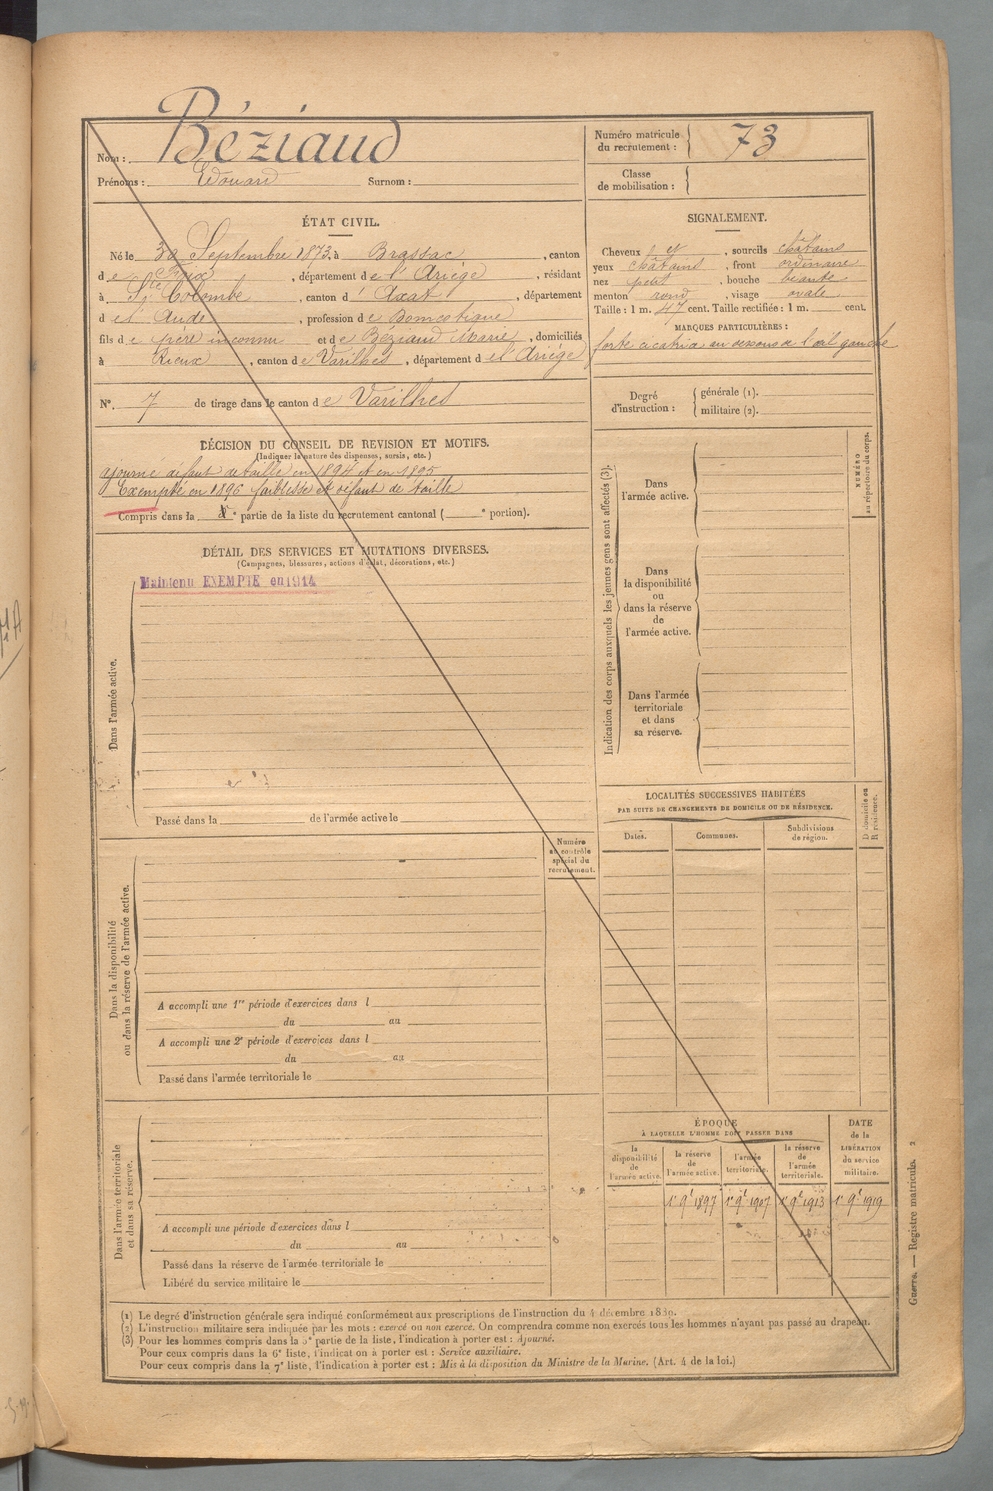 Nom : Béziaud
Prénoms : Edouard Surnom :
Numéro matricule du recrutement : 73
Classe de mobilisation :
ÉTAT CIVIL.
Né le 30 Septembre 1873, à Brassac, canton
de Foix, département de l'Ariège, résidant
à Ste Colombe, canton d'Axat, département
de l'Aude, profession de Domestique
fils de père inconnu et de Béziaud Marie, domiciliés
à Rieux, canton de Varilhes, département de l'Ariège
N°. 7 de tirage dans le canton de Varilhes
SIGNALEMENT.
Cheveux et, sourcils châtains
yeux châtains, front ordinaire
nez petit, bouche béante
menton rond, visage ovale
Taille : 1 m. 47 cent. Taille rectifiée : 1 m. cent.
MARQUES PARTICULIÈRES :
forte cicatrice au dessous de l'œil gauche
Degré d'instruction : générale (1).
militaire (2).
DÉCISION DU CONSEIL DE REVISION ET MOTIFS.
(Indiquer la nature des dispenses, sursis, etc.)
ajourné défaut de taille en 1894 et en 1895
Exempté en 1896 faiblesse et défaut de taille
Compris dans la e partie de la liste du recrutement cantonal ( e portion).
DÉTAIL DES SERVICES ET MUTATIONS DIVERSES.
(Campagnes, blessures, actions d'éclat, décorations, etc.)
Maintenu EXEMPTE en 1914
Dans l'armée active.
Passé dans la de l'armée active le
Indication des corps auxquels les jeunes gens sont affectés (3).
NUMÉRO au répertoire du corps.
Dans l'armée active.
Dans la disponibilité ou dans la réserve de l'armée active.
Dans l'armée territoriale et dans sa réserve.
LOCALITÉS SUCCESSIVES HABITÉES
PAR SUITE DE CHANGEMENTS DE DOMICILE OU DE RÉSIDENCE.
Dates. Communes. Subdivisions de région. D domicile ou R résidence.
Numéro au contrôle spécial du recrutement.
Dans la disponibilité ou dans la réserve de l'armée active.
A accompli une 1re période d'exercices dans l
du au
A accompli une 2e période d'exercices dans l
du au
Passé dans l'armée territoriale le
Dans l'armée territoriale et dans sa réserve.
A accompli une période d'exercices dans l
du au
Passé dans la réserve de l'armée territoriale le
Libéré du service militaire le
ÉPOQUE
À LAQUELLE L'HOMME DOIT PASSER DANS
la disponibilité de l'armée active. la réserve de l'armée active. l'armée territoriale. la réserve de l'armée territoriale.
DATE de la LIBÉRATION du service militaire.
1er 9e 1897 1er 9e 1907 1er 9e 1913 1er 9e 1919
(1) Le degré d'instruction générale sera indiqué conformément aux prescriptions de l'instruction du 4 décembre 1889.
(2) L'instruction militaire sera indiquée par les mots : exercé ou non exercé. On comprendra comme non exercés tous les hommes n'ayant pas passé au drapeau.
(3) Pour les hommes compris dans la 5e partie de la liste, l'indication à porter est : Ajourné.
Pour ceux compris dans la 6e liste, l'indication à porter est : Service auxiliaire.
Pour ceux compris dans la 7e liste, l'indication à porter est : Mis à la disposition du Ministre de la Marine. (Art. 4 de la loi.)
Guerre. — Registre matricule. 2